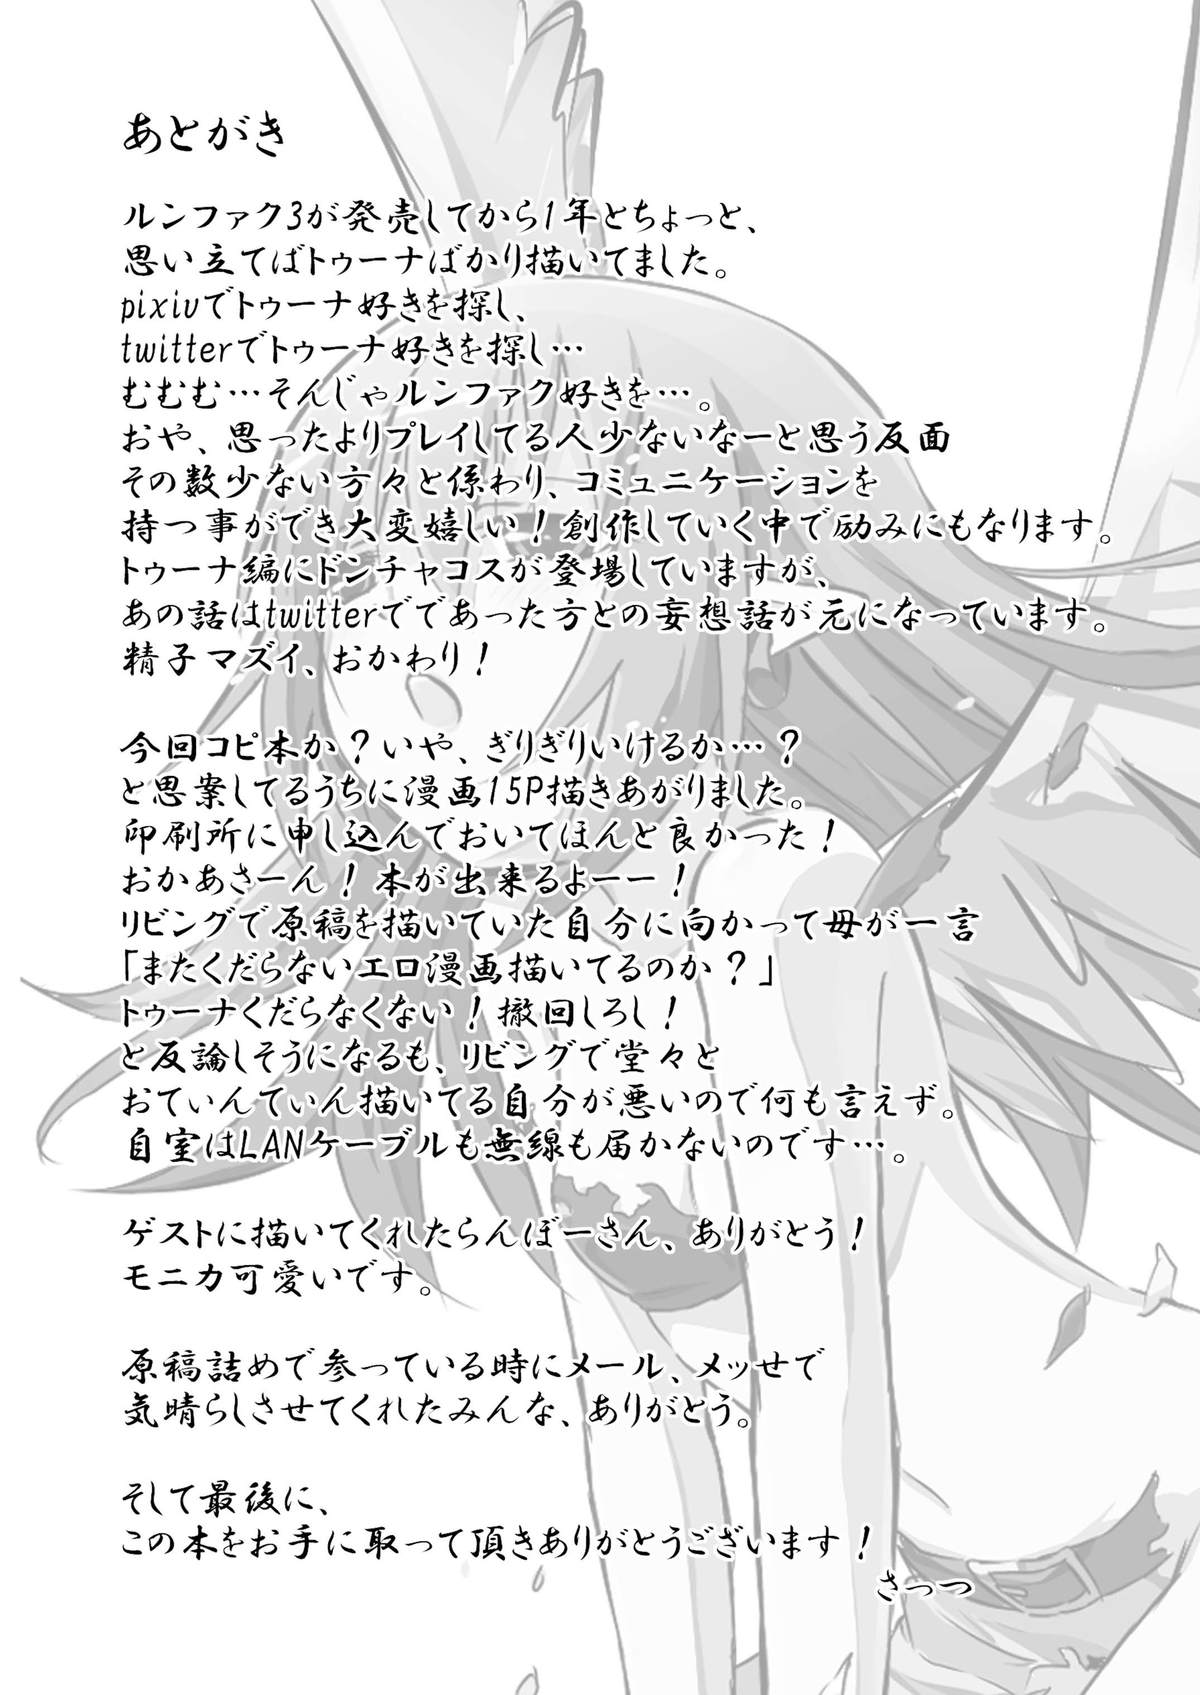 あとがき
ルンファク3が発売してから1年とちょっと、
思い立てばトゥーナばかり描いてました。
pixivでトゥーナ好きを探し、
twitterでトゥーナ好きを探し…
むむむ…そんじゃルンファク好きを…。
おや、思ったよりプレイしてる人少ないなーと思う反面
その数少ない方々と係わり、コミュニケーションを
持つ事ができ大変嬉しい！創作していく中で励みにもなります。
トゥーナ編にドンチャコスが登場していますが、
あの話はtwitterでであった方との妄想話が元になっています。
精子マズイ、おかわり！
今回コピ本か？いや、ぎりぎりいけるか…？
と思案してるうちに漫画15P描きあがりました。
印刷所に申し込んでおいてほんと良かった！
おかあさーん！本が出来るよーー！
リビングで原稿を描いていた自分に向かって母が一言
「またくだらないエロ漫画描いてるのか？」
トゥーナくだらなくない！撤回しろし！
と反論しそうになるも、リビングで堂々と
おてぃんてぃん描いてる自分が悪いので何も言えず。
自室はLANケーブルも無線も届かないのです…。
ゲストに描いてくれたらんぼーさん、ありがとう！
モニカ可愛いです。
原稿詰めで参っている時にメール、メッせで
気晴らしさせてくれたみんな、ありがとう。
そして最後に、
この本をお手に取って頂きありがとうございます！
さっつ